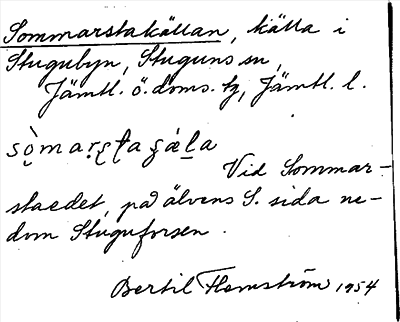 Sommarstakällan, källa i
Stugubyn, Stuguns sn,
Jämtl. ö. doms. tg, Jämtl. l.
Vid Sommar-
staedet, på älvens S. sida ne-
dom Stuguforsen.
Bertil Flemström 1954